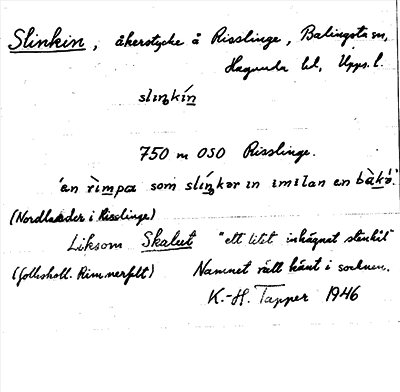 Slinkin, åkerstycke å Risslinge, Balingsta sn,
Hagunda hd, Upps. l.
sliŋkín
750 m OSO Risslinge.
"än rìmpa som slíŋkər in imilan en bàkə̀."
(Nordlander i Risslinge)
Liksom Skalut "ett litet inhägnat stenkil"
(folksholl. Rimnerfelt) Namnet väll känt i socknen.
K.-H. Tapper 1946